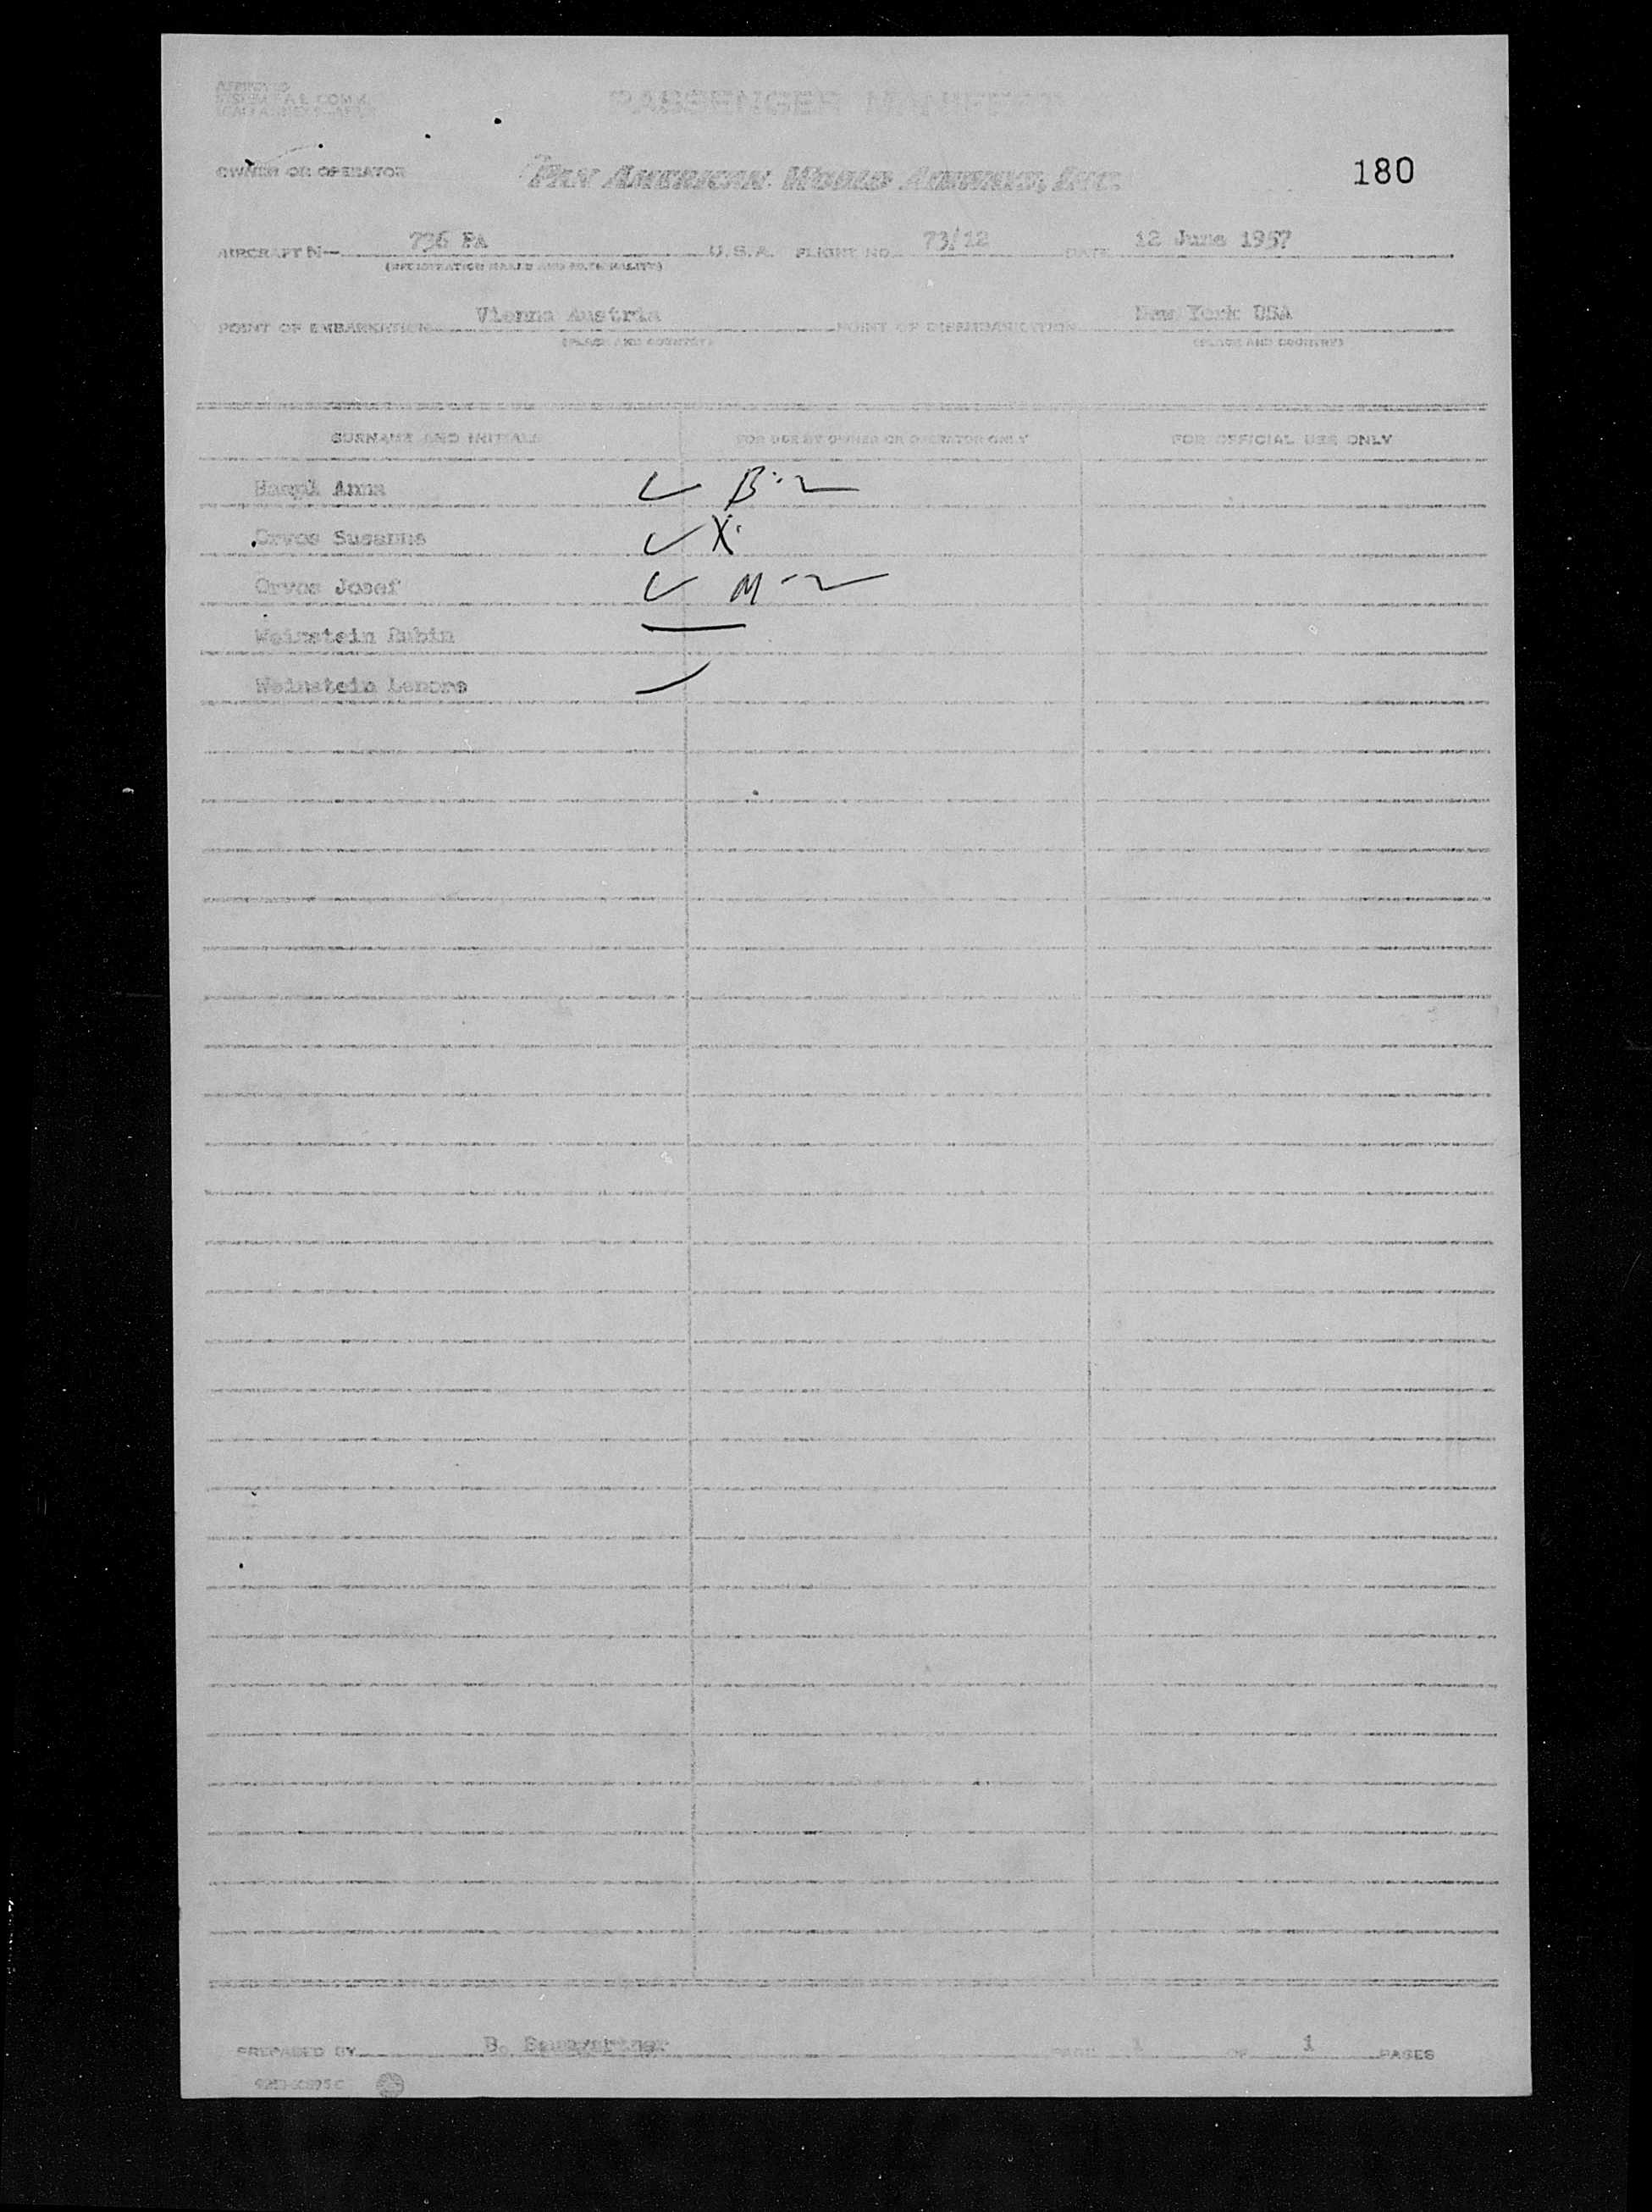 PASSENGER MANIFEST
OWNER OR OPERATOR PAN AMERICAN WORLD AIRWAYS, INC. 180
AIRCRAFT N— 736 PA U.S.A. FLIGHT NO. 73/12 DATE 12 June 1957
(REGISTRATION MARKS AND NATIONALITY)
POINT OF EMBARKATION Vienna Austria POINT OF DISEMBARKATION New York USA
(PLACE AND COUNTRY) (PLACE AND COUNTRY)
SURNAME AND INITIALS FOR USE BY OWNER OR OPERATOR ONLY FOR OFFICIAL USE ONLY
Anna ✓ B-2
Orvos Susanne ✓ X
Orvos Josef ✓ M-2
Weinstein Rubin
Weinstein Lenore
PREPARED BY B. Baumgartner PAGE 1 OF 1 PAGES